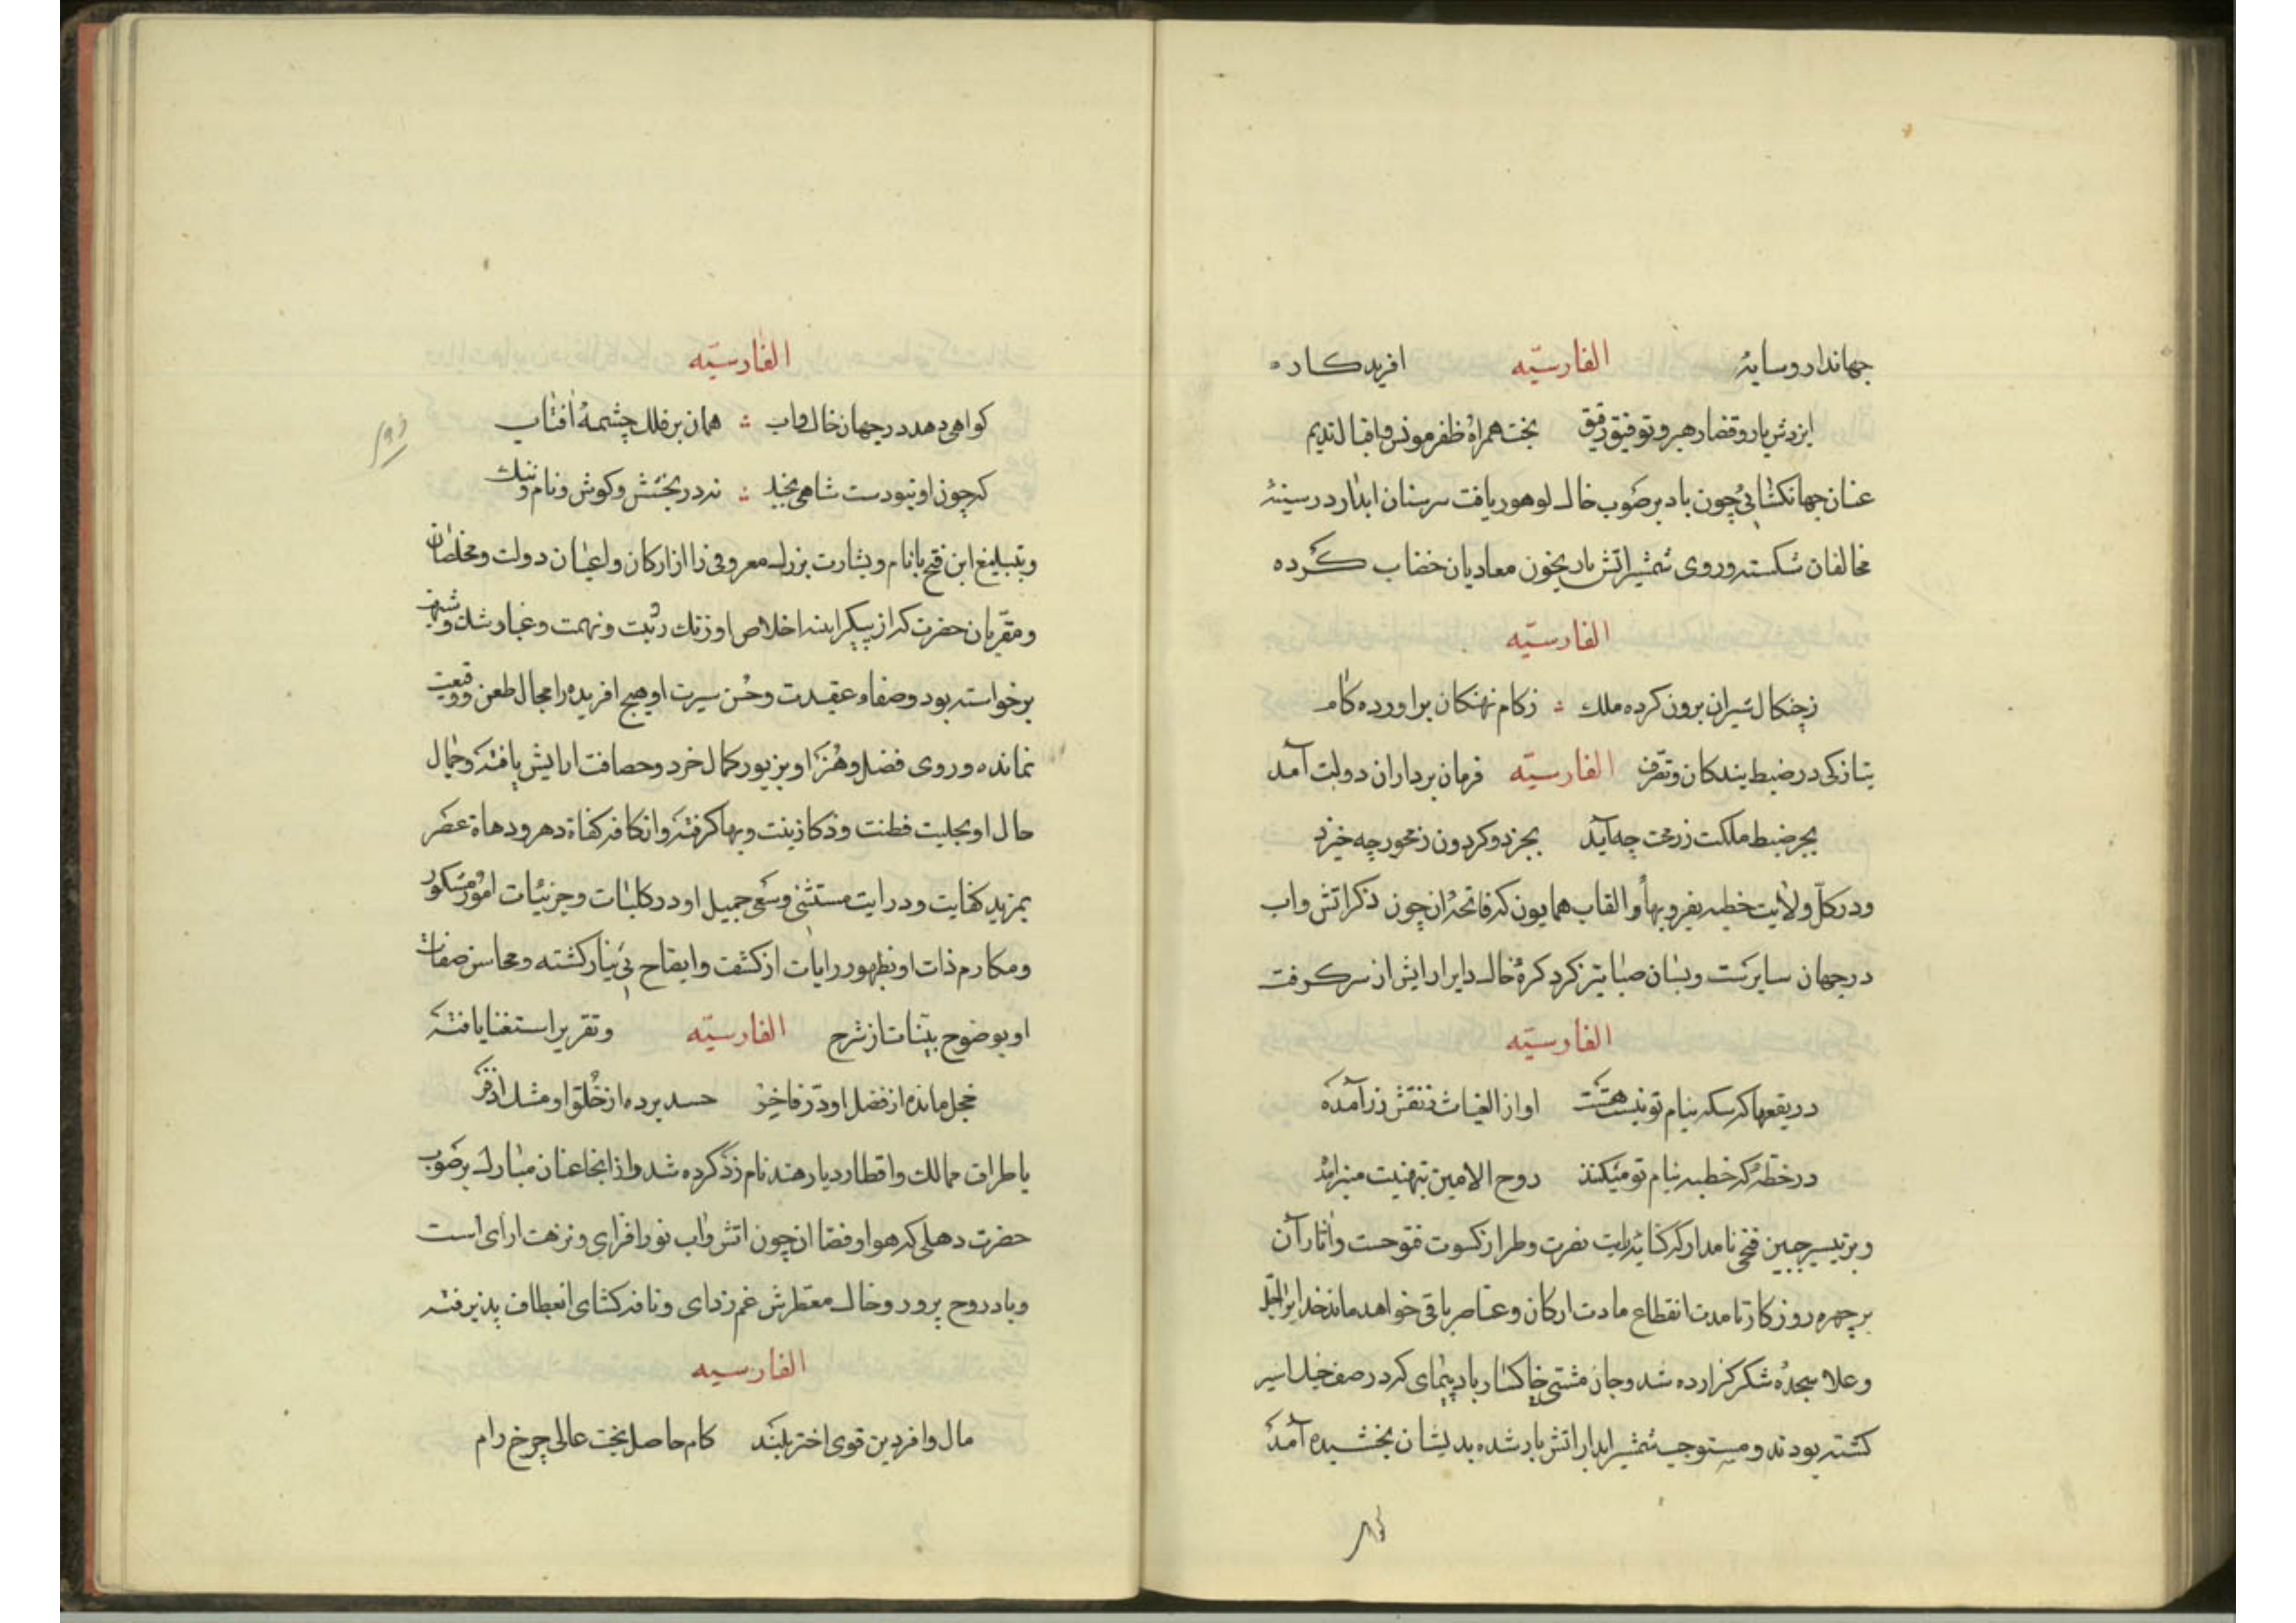 جهاندار و سایهٔ الفارسیّه افریدکاره
ایزدش یار و قضا رهبر و توفیق رفیق بخت همراه ظفر مونس و اقبال ندیم
عنان جهانکشائی چون باد برصوب خاک لوهور یافت سرسنان ابدار در سینهٔ
مخالفان شکسته و روی شمشیر اتش بار بخون معادیان خضاب کرده
الفارسیّه
زچنکال شیران برون کرده ملک ؞ زکام نهنکان براورده کام
بتازکی در ضبط بندکان و تصرف الفارسیّه فرمان برداران دولت آمد
بجز ضبط ملکت زرمحت چه آید بجز دو کردون زمحور چه خیزد
و در کلّ ولایت خطبه بفر و بهأ و القاب همایون که فاتحهٔ ان چون ذکر اتش و اب
در جهان سایرست و بسان صبا تیز کرد کرهٔ خاک دایر ارایش از سر کرفت
الفارسیّه
در بقعها که سکه بنام تو نیست هست اواز الغیاث ز نقش زر آمده
در خطهٔ که خطبه بنام تو میکنند روح الامین بتهنیت منبر امد
و بر تیسیر چنین فتحی نامدار که کتابهٔ رایت نصرت و طراز کسوت فتوحست و اثار آن
بر چهره روزکار تا مدت انقطاع مادت ارکان و عناصر باقی خواهد ماند خدایرا جلّ
و علا سجدهٔ شکر کزارده شد و جان مشتی خاکسار باد پیمای که در صف خیل اسیر
کشته بودند و مستوجب شمشیر ابدار اتش بار شده بدیشان بخشیده آمد
الفارسیّه
کواهی دهد در جهان خاک و اب ؞ همان بر فلک چشمهٔ افتاب
که چون او نبودست شاهی بجنک ؞ نه در بخشش و کوشش و نام و ننک
و بتبلیغ این فتح بانام و بشارت بزرک معروفی را از ارکان و اعیان دولت و مخلصان
و مقرّبان حضرت که از پیکر اینه اخلاص او زنک ریبت و تهمت و غبار شک و شبهت
برخواسته بود و صفاء عقیدت و حسن سیرت او هیچ افریده را مجال طعن و وقیعت
نمانده و روی فضل و هنر او بزیور کمال خرد و حصافت ارایش یافته و جمال
حال او بحلیت فطنت و ذکا زینت و بها کرفته و از کافه کفاة دهر و دهاة عصر
بمزید کفایت و درایت مستثنی و سعی جمیل او در کلیات و جزئیات امور مشکور
و مکارم ذات او بظهور رایات از کشف و ایضاح بی نیاز کشته و محاسن صفات
او بوضوح بیّنات از شرح الفارسیّه و تقریر استغنا یافته
خجل مانده از فضل او درّ فاخر حسد برده از خلق او مشک اذفر
باطراف ممالک و اقطار دیار هند نامزد کرده شد و از انجا عنان مبارک بر صوب
حضرت دهلی که هوا و فضا ان چون اتش و اب نور افزای و نزهت ارای است
و باد روح پرور و خاک معطرش غم زدای و نافه کشای انعطاف پذیرفته
الفارسیه
مال وافر دین قوی اختر بلند کام حاصل بخت عالی چرخ رام